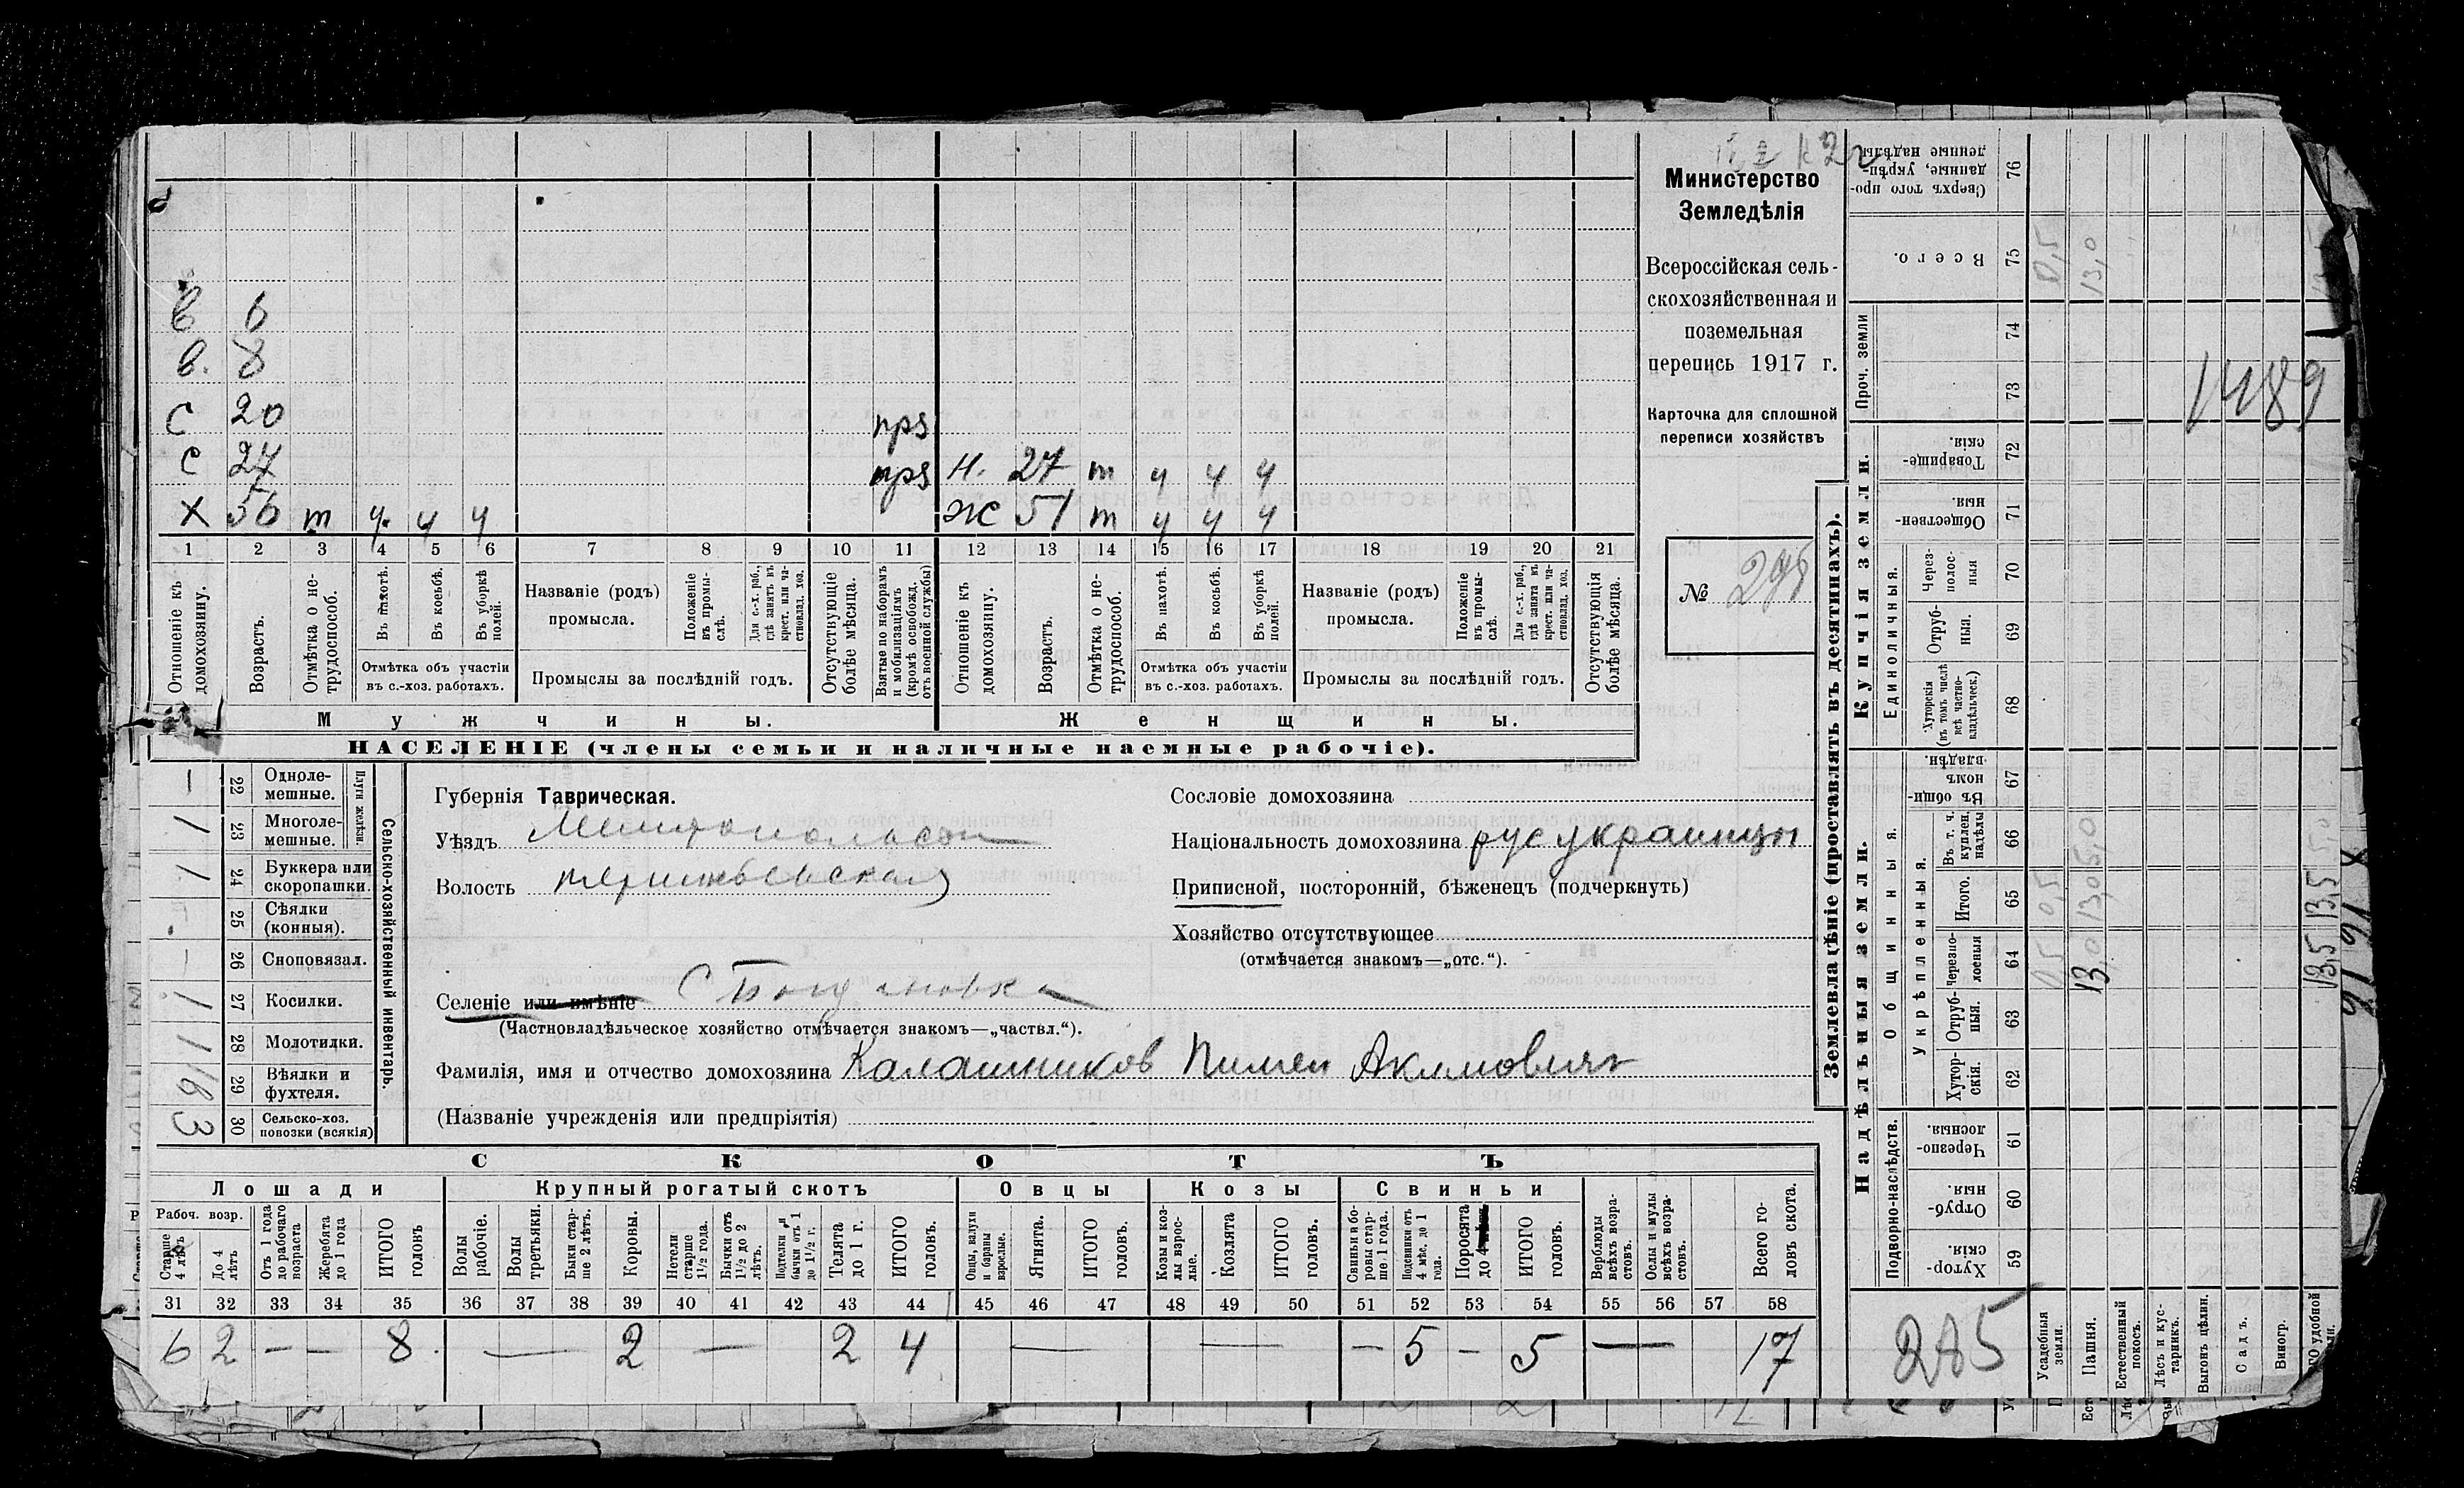 Министерство
Земледѣлія
Всероссійская сель-
скохозяйственная и
поземельная
перепись 1917 г.
Карточка для сплошной
переписи хозяйствъ
№ 295
в 6
в. 8
с 20 прз
с 27 прз н. 27 т ч ч ч
х 56 т ч. ч ч ж 51 т ч ч ч
1 2 3 4 5 6 7 8 9 10 11 12 13 14 15 16 17 18 19 20 21
Отношеніе къ домохозяину.
Возрастъ.
Отмѣтка о не-трудоспособ.
Въ пахотѣ.
Въ косьбѣ.
Въ уборкѣ полей.
Отмѣтка объ участіи
въ с.-хоз. работахъ.
Названіе (родъ)
промысла.
Положеніе въ промы-слѣ.
Для с.-х. раб., гдѣ занятъ въ крест. или ча-стновлад. хоз.
Промыслы за послѣдній годъ.
Отсутствующіе болѣе мѣсяца.
Взятые по наборамъ и мобилизаціямъ (кромѣ освобожд. отъ военной службы)
Отношеніе къ домохозяину.
Возрастъ.
Отмѣтка о не-трудоспособ.
Въ пахотѣ.
Въ косьбѣ.
Въ уборкѣ полей.
Отмѣтка объ участіи
въ с.-хоз. работахъ.
Названіе (родъ)
промысла.
Положеніе въ промы-слѣ.
Для с.-х. раб., гдѣ занята въ крест. или ча-стновлад. хоз.
Промыслы за послѣдній годъ.
Отсутствующія болѣе мѣсяца.
Мужчины. Женщины.
НАСЕЛЕНІЕ (члены семьи и наличные наемные рабочіе).
Сельско-хозяйственный инвентарь.
Плуги желѣзн.
Одноле-мешные. 22 —
Многоле-мешные. 23 1
Буккера или скоропашки. 24 1
Сѣялки (конныя). 25 —
Сноповязал. 26 —
Косилки. 27 1
Молотилки. 28 1
Вѣялки и фухтеля. 29
Сельско-хоз. повозки (всякія) 30 3
Губернія Таврическая.
Уѣздъ Мелитопольскій
Волость
Селеніе или имѣніе С Богдановка
(Частновладѣльческое хозяйство отмѣчается знакомъ—„частвл.“).
Фамилія, имя и отчество домохозяина Калашников Пимен Акимович
(Названіе учрежденія или предпріятія)
Сословіе домохозяина
Національность домохозяина рус украинцы
Приписной, посторонній, бѣженецъ (подчеркнуть)
Хозяйство отсутствующее
(отмѣчается знакомъ—„отс.“).
СКОТЪ
Лошади Крупный рогатый скотъ Овцы Козы Свиньи
Рабоч. возр.
Старше 4 лѣтъ
До 4 лѣтъ
Отъ 1 года до рабочаго возраста
Жеребята до 1 года
ИТОГО головъ
Волы рабочіе.
Волы третьяки.
Быки стар-ше 2 лѣтъ.
Коровы.
Нетели старше 1½ года.
Бычки отъ 1½ до 2 лѣтъ.
Подтелки и бычки отъ 1 до 1½ г.
Телята до 1 г.
ИТОГО головъ.
Овцы, валухи и бараны взрослые.
Ягнята.
ИТОГО головъ.
Козы и коз-лы взрос-лые.
Козлята
ИТОГО головъ.
Свиньи и бо-ровы стар-ше 1 года.
Подсвинки отъ 4 мѣс. до 1 года.
Поросята до 4
ИТОГО головъ.
Верблюды всѣхъ возра-стовъ.
Ослы и мулы всѣхъ возра-стовъ.
Всего го-ловъ скота.
31 32 33 34 35 36 37 38 39 40 41 42 43 44 45 46 47 48 49 50 51 52 53 54 55 56 57 58
6 2 — — 8 — 2 — 2 4 — — — 5 — 5 — 17
Землевладѣніе (проставлять въ десятинахъ).
Сверхъ того про-данные, укрѣп-ленные надѣлы 76
Всего. 75 0,5 13,0
Проч. земли 74 73
1489
Купчія земли.
Товарище-скія. 72
Обществен-ныя. 71
Единоличныя.
Через-полос-ныя 70
Отруб-ныя. 69
Хуторскія (въ томъ числѣ всѣ частно-владѣльческ.) 68
Надѣльныя земли.
Общинныя.
Въ общи-номъ владѣн. 67
Укрѣпленныя.
Въ т. ч. куплен. надѣлы 66 5,0
Итого. 65 0,5 13,0 13,5
Черезпо-лосныя 64 0,5 13,0 13,5
Отруб-ныя. 63
Хутор-скія. 62
Подворно-наслѣдств.
Черезпо-лосныя 61
Отруб-ныя. 60
Хутор-скія. 59
285
Усадебныя земли.
Пашня.
Естественный покосъ.
Лѣсъ и кус-тарникъ.
Выгонъ цѣлин.
Садъ.
Виногр.
удобной